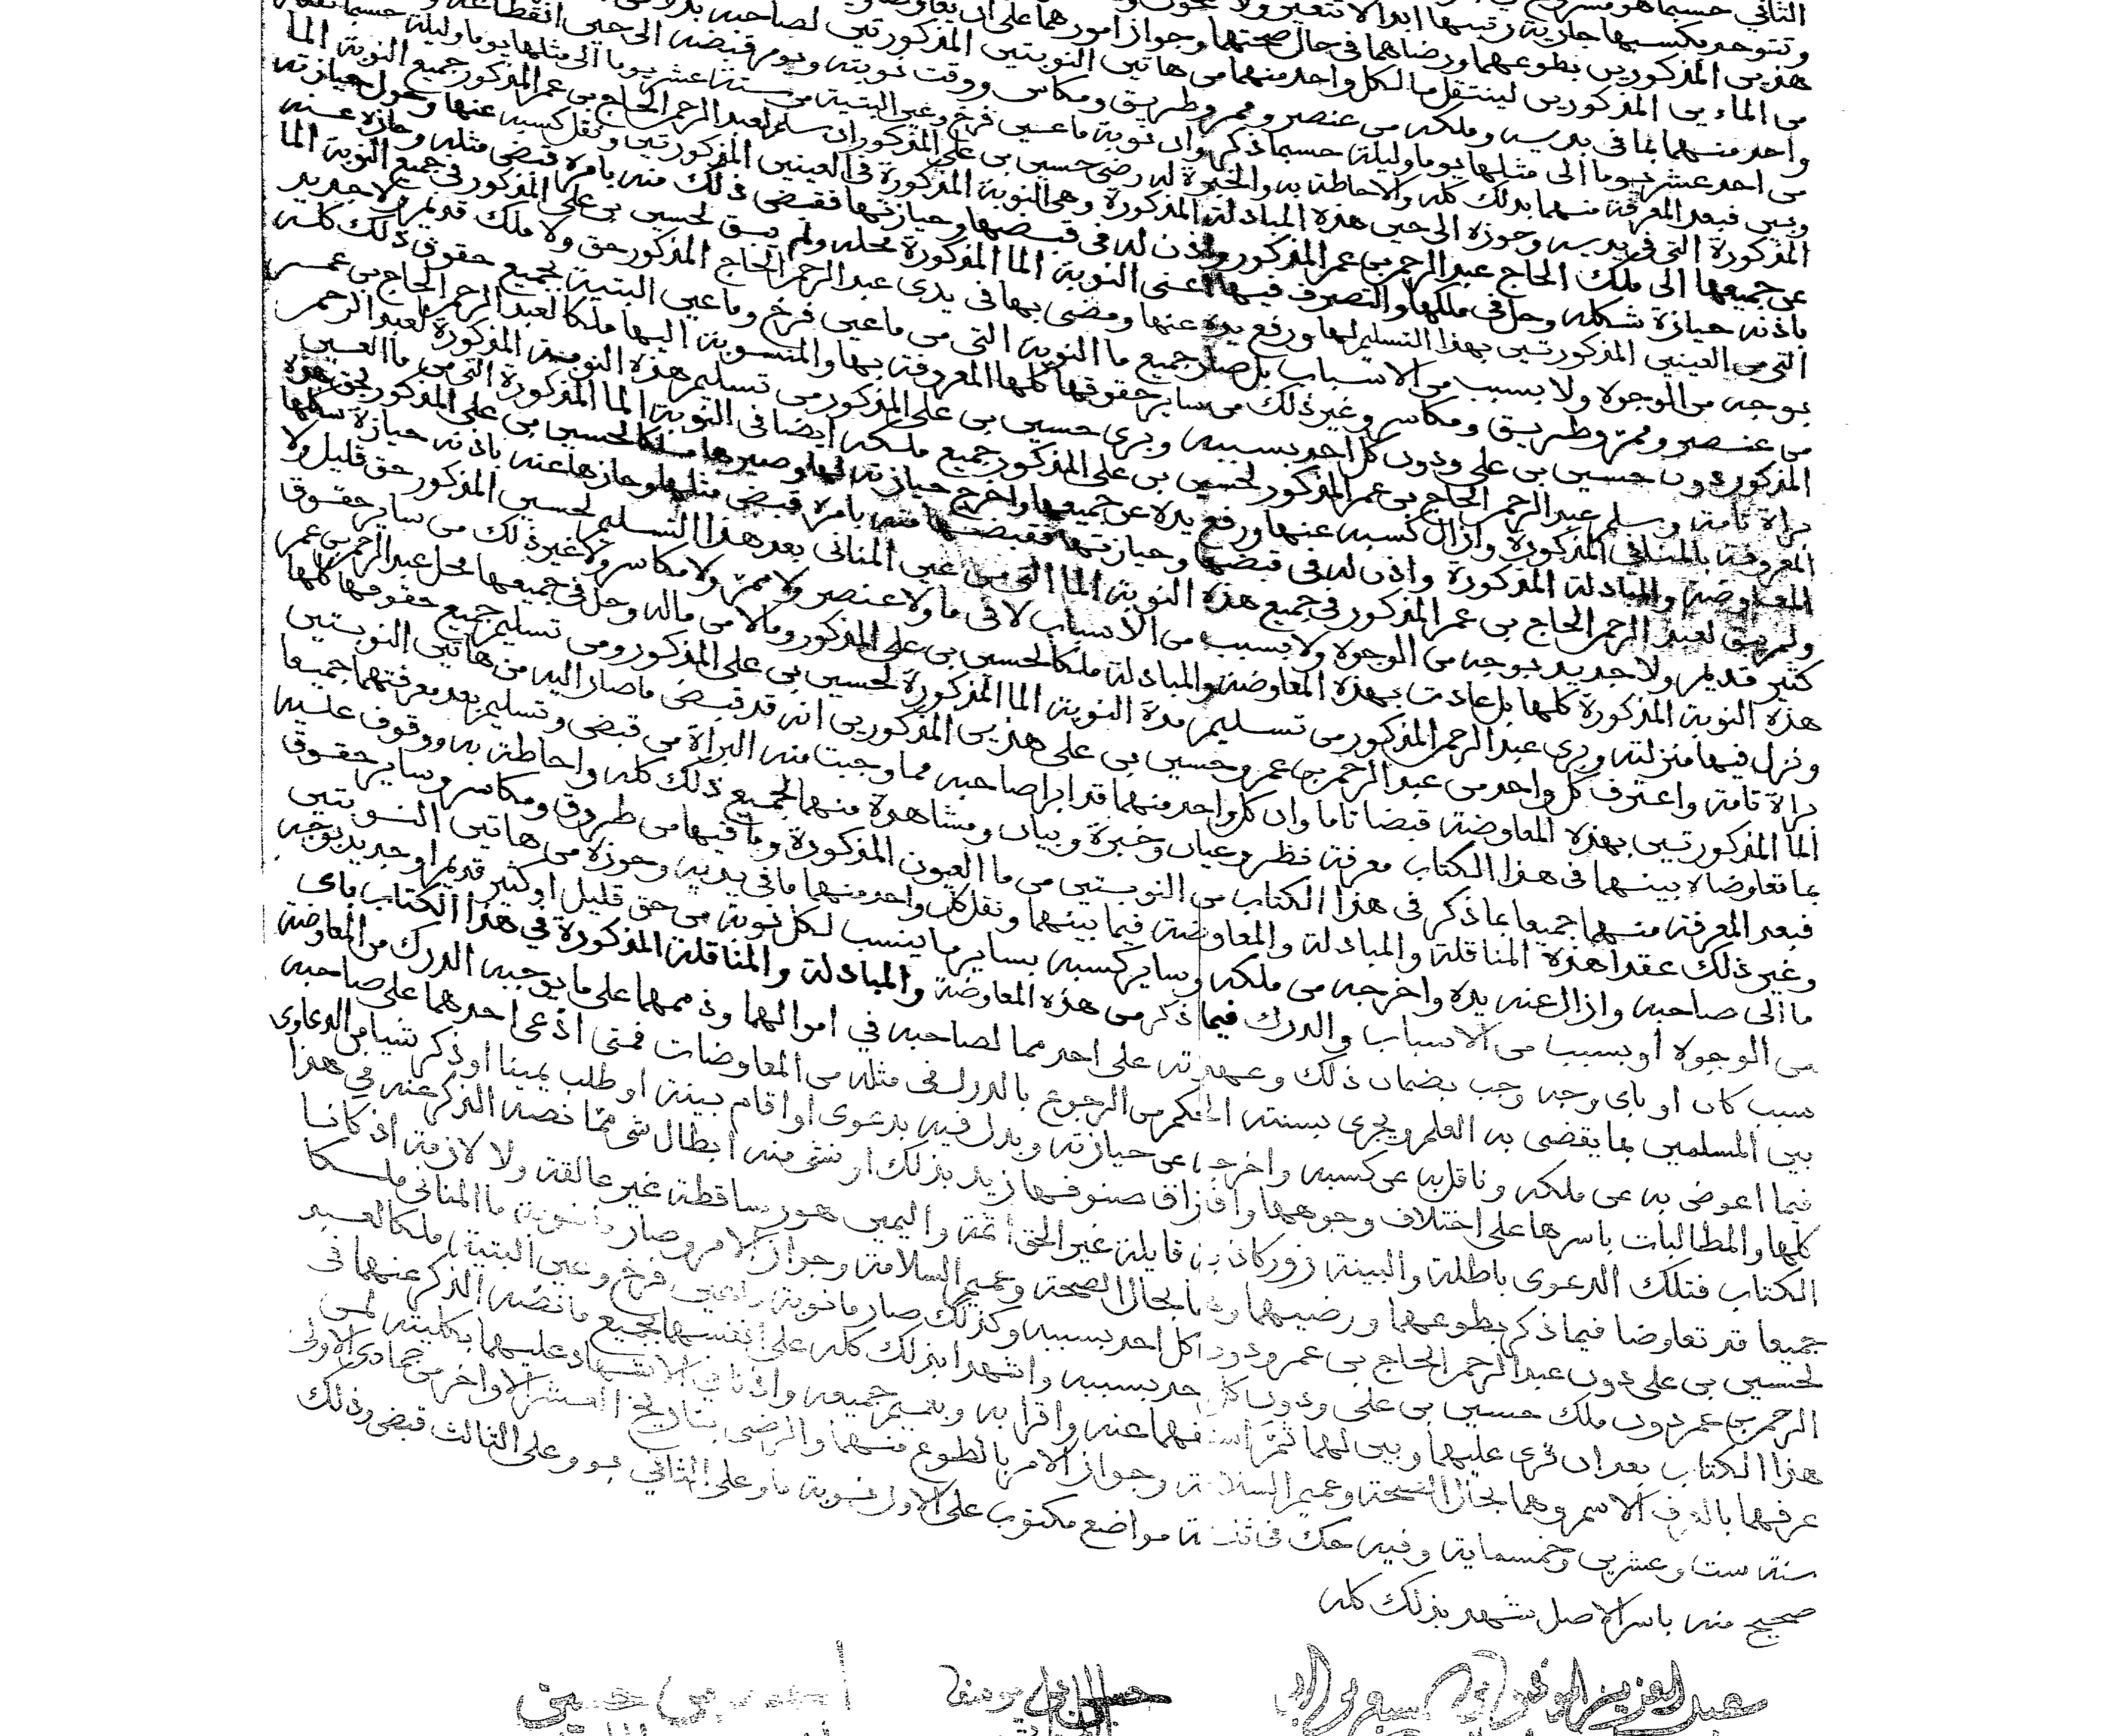 الثاني حسبما هو مشروح في
وتتوحد بكسبها جارية رتبها ابدا لا تتغير ولا تحول
هذين المذكورين بطوعهما ورضاهما في حال صحتهما وجواز امورهما على ان يعاوض
من الماء بين المذكورين لينتقل ما لكل واحد منهما من هاتين النوبتين المذكورتين لصاحبه بدلا
واحد منهما بما في يديه وملكه من عنصر وممر وطريق ومكاسر ووقت نوبته ويوم قبضه الى حين انقطاعه
من احد عشر يوما الى مثلها يوما وليلة حسبما ذكر وان نوبة ما عين فرخ وعين البتية من ستة عشر يوما الى مثلها يوما وليلة حسبما
وبين فبعد المعرفة منهما بذلك كله والاحاطة به والخبرة له رضى حسين بن علي المذكور ان سلم لعبد الرحمن الحاج بن عمر المذكور جميع النوبة الما
المذكورة التي في يديه وحوزه الى حين هذه المبادلة المذكورة وهي النوبة المذكورة في العينين المذكورتين ونقل كسبه عنها وحول حيازته
عن جميعها الى ملك الحاج عبد الرحمن بن عمر المذكور واذن له في قبضها وحيازتها فقبض ذلك منه بامره قبض مثله وحازه عنه
باذنه حيازة شكله وحل في ملكها والتصرف فيها اعنى النوبة الما المذكورة محله ولم يبق لحسين بن علي المذكور في جميع النوبة الما
التي من العينين المذكورتين بهذا التسليم لها ورفع يده عنها ومضى بها في يدى عبد الرحمن الحاج المذكور حق ولا ملك قديم ولا جديد
بوجه من الوجوه ولا بسبب من الاسباب بل صار جميع ما النوبة التي من ما عين فرخ وما عين البتية بجميع حقوق ذلك كله
من عنصر وممر وطريق ومكاسر وغير ذلك من ساير حقوقها كلها المعروفة بها والمنسوبة اليها ملكا لعبد الرحمن الحاج بن عمر
المذكور دون حسين بن علي ودون كل احد بسببه وبرى حسين بن علي المذكور من تسليم هذه النوبة المذكورة لعبد الرحمن
براة تامة وسلم عبد الرحمن الحاج بن عمر المذكور لحسين بن علي المذكور جميع ملكه ايضا في النوبة الما المذكورة التي من ما العين
المعروفة بالمناني المذكورة وازال كسبه عنها ورفع يده عن جميعها واخرج حيازته لها وصيرها ملكا لحسين بن علي المذكور بحق هذه
المعاوضة والمبادلة المذكورة واذن له في قبضها وحيازتها فقبضها منه بامره قبض مثلها وحازها عنه باذنه حيازة شكلها
ولم يبق لعبد الرحمن الحاج بن عمر المذكور في جميع هذه النوبة الما التي من عين المناني بعد هذا التسليم لحسين المذكور حق قليل ولا
كثير قديم ولا جديد بوجه من الوجوه ولا بسبب من الاسباب لا في ما ولا عنصر ولا ممر ولا مكاسر ولا غير ذلك من ساير حقوق
هذه النوبة المذكورة كلها بل عادت بهذه المعاوضة والمبادلة ملكا لحسين بن علي المذكور ومالا من ماله وحل في جميعها محل عبد الرحمن بن عمر
ونزل فيها منزلته وبرى عبد الرحمن المذكور من تسليم مدة النوبة الما المذكورة لحسين بن علي المذكور ومن تسليم جميع حقوقها كلها
براة تامة واعترف كل واحد من عبد الرحمن بن عمر وحسين بن علي هذين المذكورين انه قد قبض ما صار اليه من هاتين النوبتين
الما المذكورتين بهذه المعاوضة قبضا تاما وان كل واحد منهما قد ابرا صاحبه مما وجبت منه البراة من قبض وتسليم بعد معرفتهما جميعا
بما تعاوضاه بينهما في هذا الكتاب معرفة نظر وعيان وخبرة وبيان ومشاهدة منهما لجميع ذلك كله واحاطة به ووقوف عليه
فبعد المعرفة منهما جميعا بما ذكر في هذا الكتاب من النوبتين من ما العيون المذكورة وما فيها من طروق ومكاسر وساير حقوق
وغير ذلك عقدا هذه المناقلة والمبادلة والمعاوضة فيما بينهما ونقل كل واحد منهما ما في يديه وحوزه من هاتين النوبتين
ما الى صاحبه وازال عنه يده واخرجه من ملكه وساير كسبه بساير ما ينسب لكل نوبة من حق قليل او كثير قديم او جديد بوجه
من الوجوه او بسبب من الاسباب والدرك فيما ذكر من هذه المعاوضة والمبادلة والمناقلة المذكورة في هذا الكتاب باى
سبب كان او باى وجه وجب بضمان ذلك وعهدته على احد مما لصاحبه في اموالهما وذممهما على ما يوجبه الدرك من المعاوضة
بين المسلمين بما يقضى به العلم ويجرى بسنته الحكم من الرجوع بالدرك في مثله من المعاوضات فمتى ادعى احدهما على صاحبه
فيما اعوض به عن ملكه وناقل به عن كسبه واخرجه عن حيازته وبدل فيه بدعوى او اقام بينة او طلب يمينا او ذكر شيا من الدعاوى
كلها والمطالبات باسرها على اختلاف وجوهها وافتراق صنوفها زيد بذلك او نقص منه ابطال شي مما نصه الذكر عنه في هذا
الكتاب فتلك الدعوى باطلة والبينة زور كاذبة قايلة غير الحق اثمة واليمين هور ساقطة غير عالقة ولا لازمة اذ كانا
جميعا قد تعاوضا فيما ذكر بطوعهما ورضيهما وهما بحال الصحة وعميم السلامة وجواز الامر وصار ما نوبة ما المناني ملكا
لحسين بن علي دون عبد الرحمن الحاج بن عمر ودون كل احد بسببه وكذلك صار ما نوبة ما عين فرخ وعين البتية ملكا لعبد
الرحمن بن عمر دون ملك حسين بن علي ودون كل احد بسببه واشهدا بذلك كله على انفسهما بجميع ما نصه الذكر عنهما في
هذا الكتاب بعد ان قرى عليهما وبين لهما ثمر فهما عنه واقرا به وبفهم جميعه واذنا في الاشهاد عليهما بكليته لمن
عرفهما بالعرف الاسم وهما بحال الصحة وعميم السلامة وجواز الامر بالطوع منهما والرضى بتاريخ العشر الاواخر من جمادى الاولى
سنة ست وعشرين وخمسماية وفيه حك في ثلثة مواضع مكتوب على الاول نوبة ما وعلى الثاني بو وعلى الثالث قبض وذلك
صحيح منه باسر الاصل شهد بذلك كله
عبد العزيز بن حسن بن يوسف احمد بن حسين